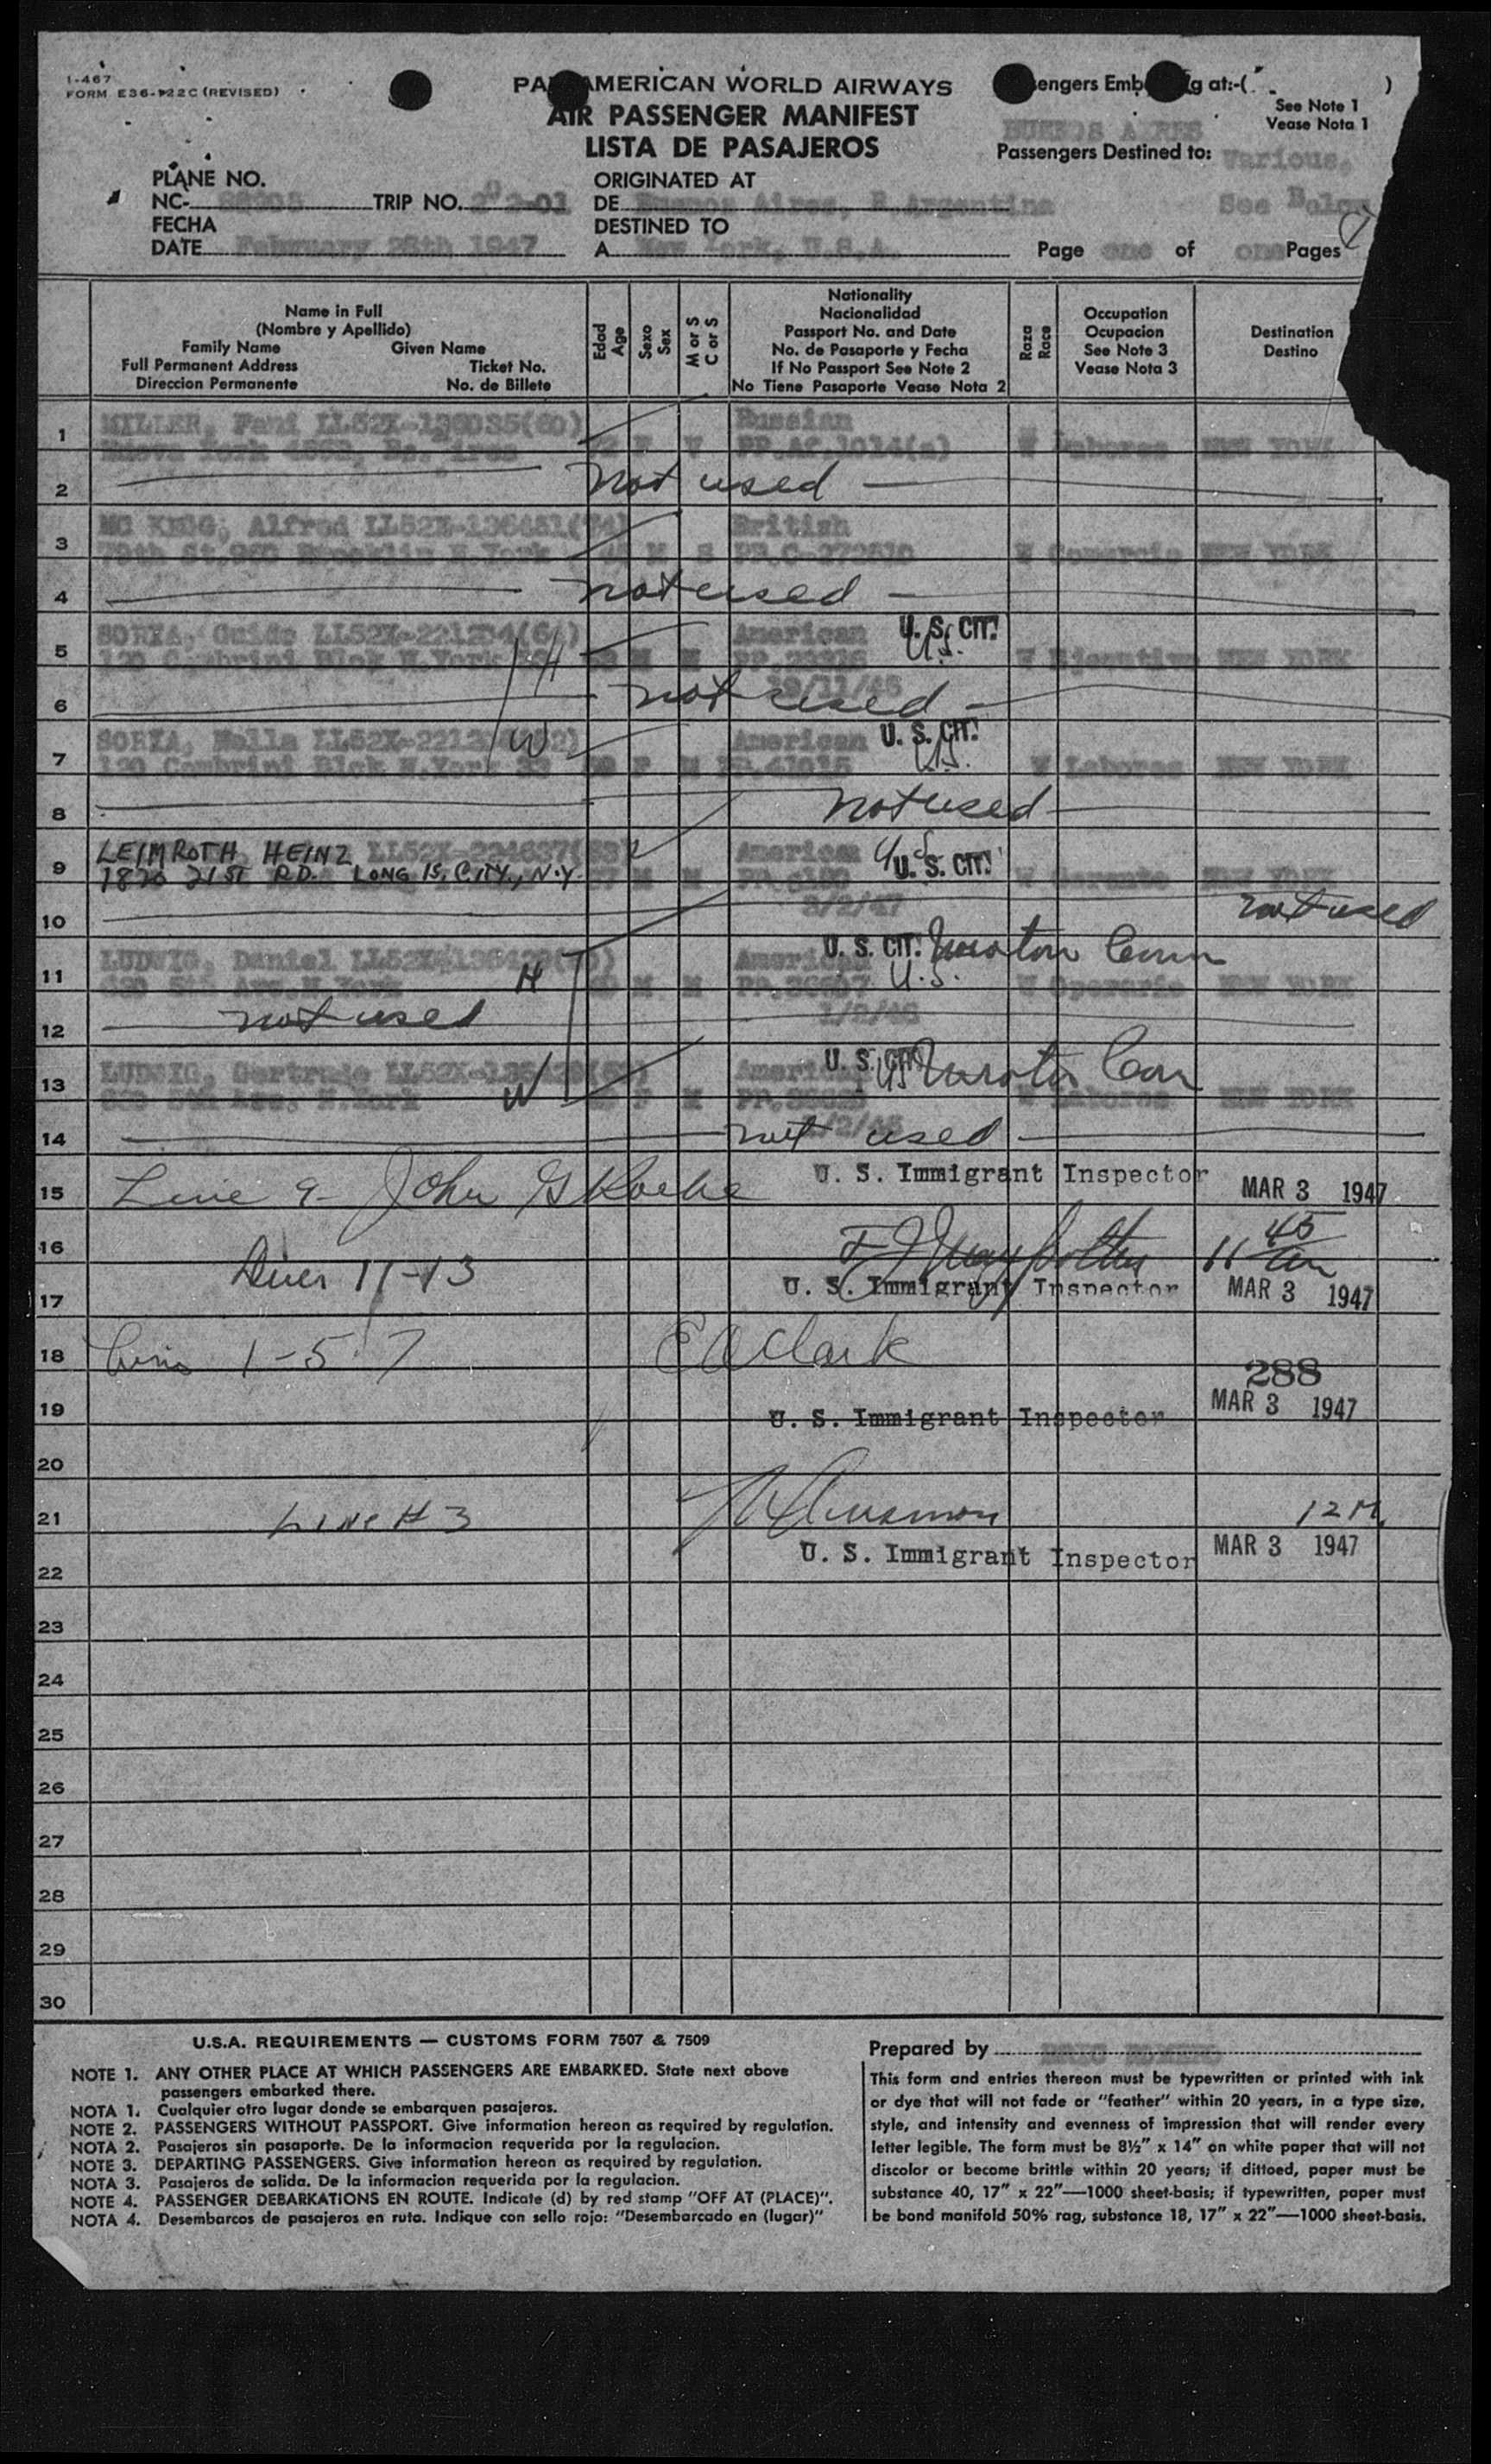 I-467
FORM E36-122C (REVISED)
PAN AMERICAN WORLD AIRWAYS
AIR PASSENGER MANIFEST
LISTA DE PASAJEROS
Passengers Embarking at:-( )
See Note 1
Vease Nota 1
BUENOS AIRES
Passengers Destined to: Various,
See Below
PLANE NO.
NC- TRIP NO. 202-01
FECHA
DATE February 28th 1947
ORIGINATED AT
DE Buenos Aires, R.Argentina
DESTINED TO
A New York, U.S.A.
Page one of one Pages
Name in Full
(Nombre y Apellido)
Family Name Given Name
Full Permanent Address Ticket No.
Direccion Permanente No. de Billete
Edad
Age
Sexo
Sex
M or S
C or S
Nationality
Nacionalidad
Passport No. and Date
No. de Pasaporte y Fecha
If No Passport See Note 2
No Tiene Pasaporte Vease Nota 2
Raza
Race
Occupation
Ocupacion
See Note 3
Vease Nota 3
Destination
Destino
1 MILLER, Fani LL52X-136035(60) Russian
Nueva York 4563, Bs. Aires F V W Labores NEW YORK
2 not used
3 Alfred British
79th St.960 Brooklin N.York M S W Comercio NEW YORK
4 not used
5 SORIA, Guido American U. S. CIT.
U.S.
N.York H M M W Ejecutivo NEW YORK
6 not used
7 SORIA, American U. S. CIT.
U.S.
N.York 33 W F M W Labores NEW YORK
8 not used
9 LEIMROTH HEINZ American U.S.
U. S. CIT.
1820 21ST RD. LONG IS. CITY, N.Y. M M W Gerente NEW YORK
3/2/47
10 not used
11 LUDWIG, Daniel American U. S. CIT.
U.S.
N.York H M M W Operario NEW YORK
12 not used
13 LUDWIG, Gertrude American U. S. CIT.
US
N.York W F M W Labores NEW YORK
14 not used
U. S. Immigrant Inspector
15 Line 9- John G MAR 3 1947
16 45
Lines 11-13 11 am
17 U. S. Immigrant Inspector MAR 3 1947
18 Lines 1-5-7 E A Clark
288
19 U. S. Immigrant Inspector MAR 3 1947
20
21 LINE # 3 12 M.
22 U. S. Immigrant Inspector MAR 3 1947
23
24
25
26
27
28
29
30
U.S.A. REQUIREMENTS — CUSTOMS FORM 7507 & 7509
NOTE 1. ANY OTHER PLACE AT WHICH PASSENGERS ARE EMBARKED. State next above
passengers embarked there.
NOTA 1. Cualquier otro lugar donde se embarquen pasajeros.
NOTE 2. PASSENGERS WITHOUT PASSPORT. Give information hereon as required by regulation.
NOTA 2. Pasajeros sin pasaporte. De la informacion requerida por la regulacion.
NOTE 3. DEPARTING PASSENGERS. Give information hereon as required by regulation.
NOTA 3. Pasajeros de salida. De la informacion requerida por la regulacion.
NOTE 4. PASSENGER DEBARKATIONS EN ROUTE. Indicate (d) by red stamp "OFF AT (PLACE)".
NOTA 4. Desembarcos de pasajeros en ruta. Indique con sello rojo: "Desembarcado en (lugar)"
Prepared by
This form and entries thereon must be typewritten or printed with ink
or dye that will not fade or "feather" within 20 years, in a type size,
style, and intensity and evenness of impression that will render every
letter legible. The form must be 8½" x 14" on white paper that will not
discolor or become brittle within 20 years; if dittoed, paper must be
substance 40, 17" x 22"—1000 sheet-basis; if typewritten, paper must
be bond manifold 50% rag, substance 18, 17" x 22"—1000 sheet-basis.